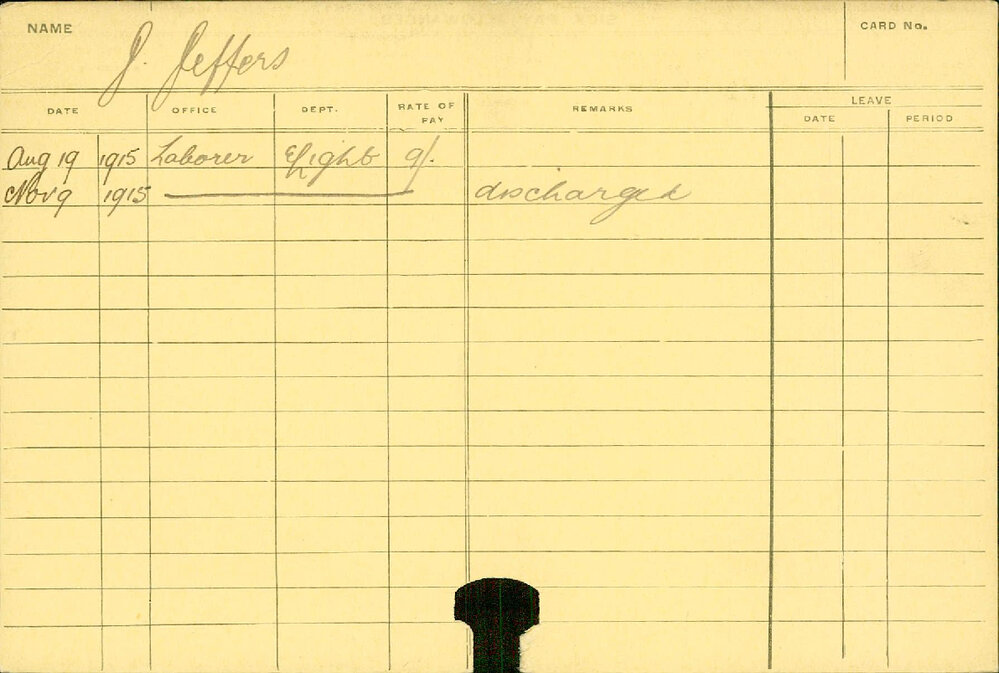 NAME J. Jeffers CARD No.
DATE OFFICE DEPT. RATE OF PAY REMARKS LEAVE
DATE PERIOD
Aug 19 1915 Laborer El Light 9/.
Nov 9 1915 discharged